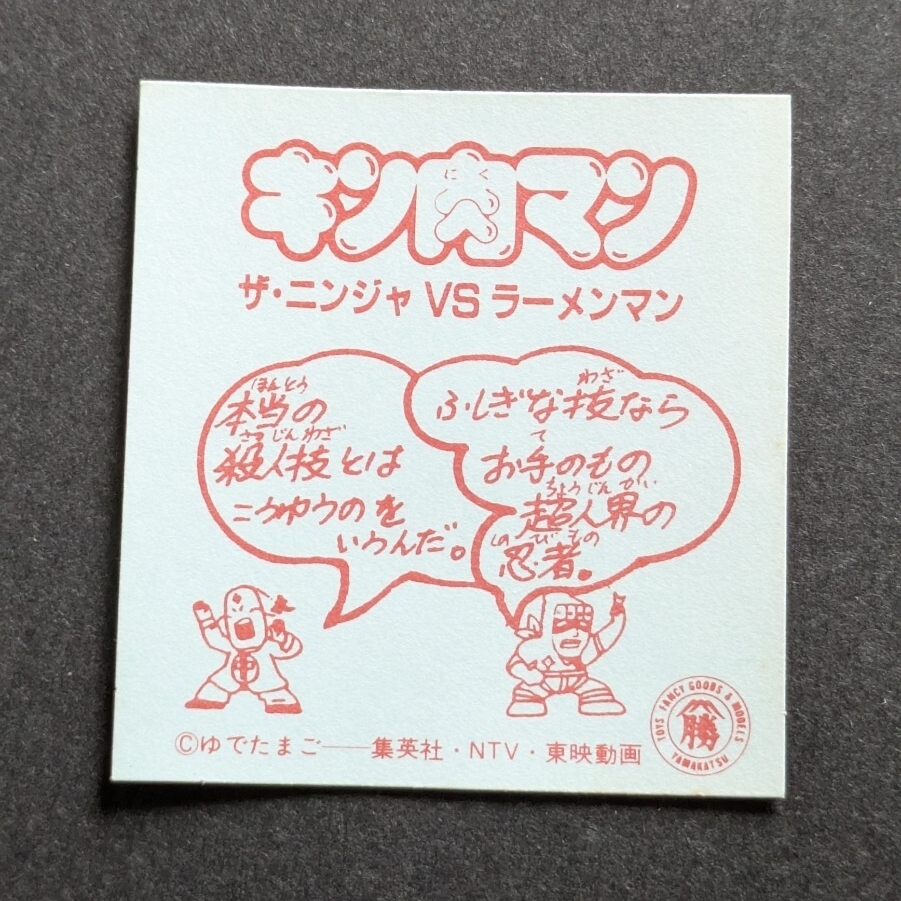 キン肉マン
にく
ザ・ニンジャ VS ラーメンマン
ほんとう
本当の
さつじんわざ
殺人技とは
こうゆうのを
いうんだ。
わざ
ふしぎな技なら
て
お手のもの
ちょうじんかい
超人界の
しのびもの
忍者。
中
©ゆでたまご——集英社・NTV・東映動画
TOYS FANCY GOODS & MODELS
勝
YAMAKATSU